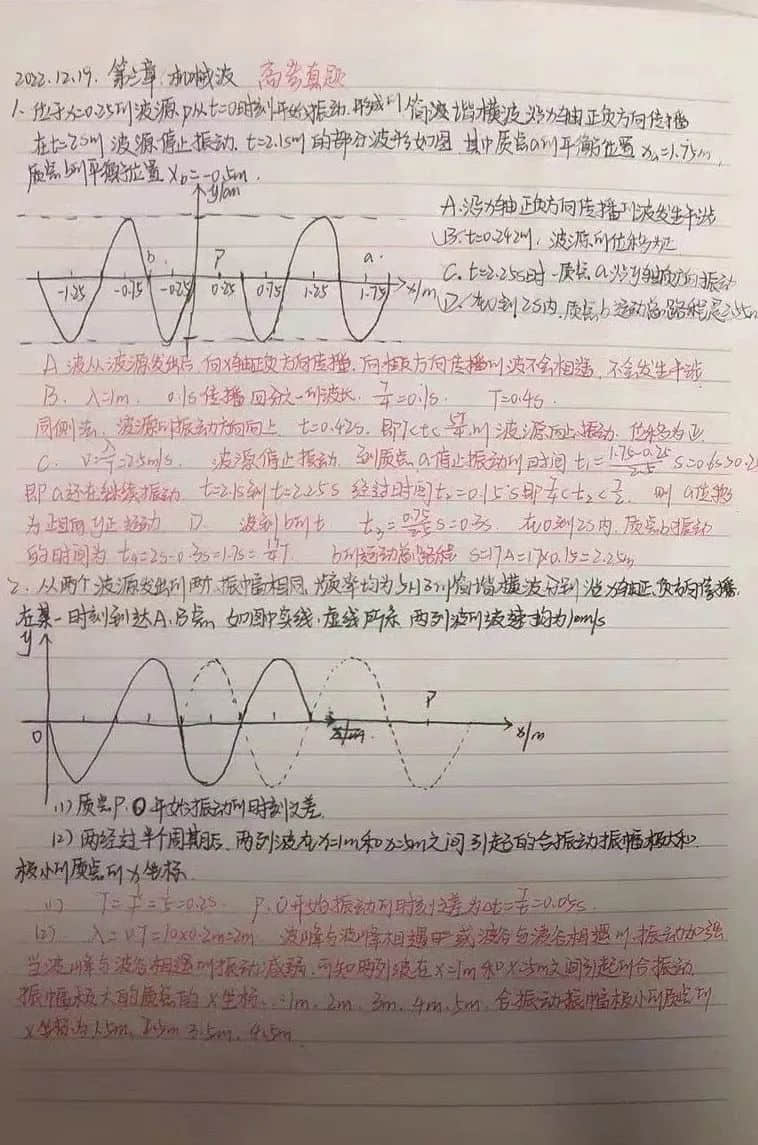 2022.12.19. 第三章. 机械波 高考真题
1. 位于x=0.25的波源p从t=0时刻开始振动.形成的简谐横波沿x轴正负方向传播
在t=2s时波源停止振动. t=2.1s时的部分波形如图.其中质点a的平衡位置xa=1.75m,
质点b的平衡位置xb=-0.5m.
y/cm
A.沿x轴正负方向传播的波发生干涉
B.t=0.42时.波源的位移为正
C. t=2.25s时.质点a沿y轴负方向振动
D.在0到2s内.质点b运动总路程是2.55m
b P a
-1.25 -0.75 -0.25 0.25 0.75 1.25 1.75 x/m
A 波从波源发出后,向x轴正负方向传播,向相反方向传播的波不会相遇,不会发生干涉
B. λ=1m. 0.1s传播四分之一的波长. T/4=0.1s. T=0.4s.
同侧法,波源的振动方向向上 t=0.42s. 即T<t<5T/4.时波源向上振动.位移为正
C. v=λ/T=2.5m/s. 波源停止振动 到质点a停止振动的时间t1=1.75-0.25/2.5 s=0.6s>0.2
即a还在继续振动 t=2.1s到t=2.25s 经过时间t2=0.15s即T/4<t2<T/2. 则a位移
为正且向y正运动 D. 波到b时t t3=0.75/2.5 s=0.3s. 在0到2s内,质点b振动
的时间为 t4=2s-0.3s=1.7s=17/4T. b的运动总路程 s=17A=17×0.15=2.25m
2. 从两个波源发出的两列振幅相同.频率均为5Hz的简谐横波分别沿x轴正、负方向传播,
在某一时刻到达A,B点, 如图中实线,虚线所示 两列波的波速均为10m/s
y
P
O x/m
(1) 质点P.O开始振动的时刻之差
(2) 再经过半个周期后.两列波在x=1m和x=5m之间引起的合振动振幅极大和
极小的质点的x坐标
(1) T=1/f=1/5=0.2s. P.O开始振动的时刻之差为Δt=T/4=0.05s.
(2) λ=vT=10×0.2m=2m 波峰与波峰相遇 或波谷与波谷相遇时.振动加强
当波峰与波谷相遇时振动减弱.可知两列波在x=1m和x=5m之间引起的合振动
振幅极大的质点的x坐标.:1m.2m.3m.4m.5m.合振动振幅极小的质点的
x坐标为1.5m, 2.5m 3.5m. 4.5m